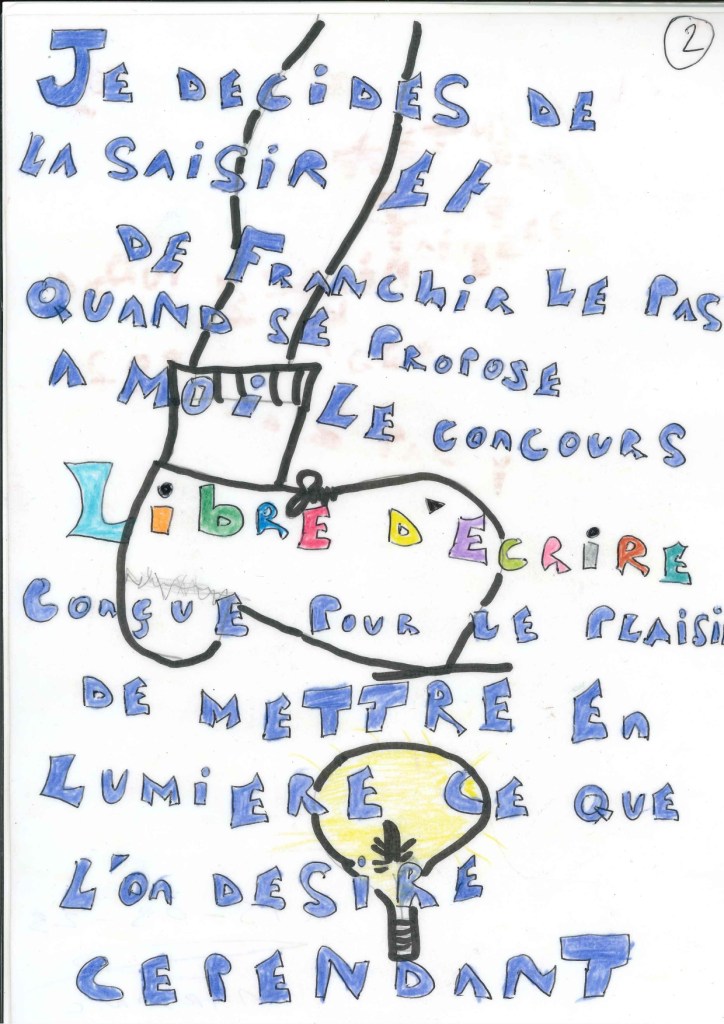 2
JE DECIDES DE
LA SAISIR Et
DE FRANCHIR LE PAS
QUAND SE PROPOSE
A MOI LE CONCOURS
LIbRE D'ECRIRE
CONçUE POUR LE PLAISI
DE METTRE En
LUMIERE CE QUE
L'On DESIRE
CEPENDANT